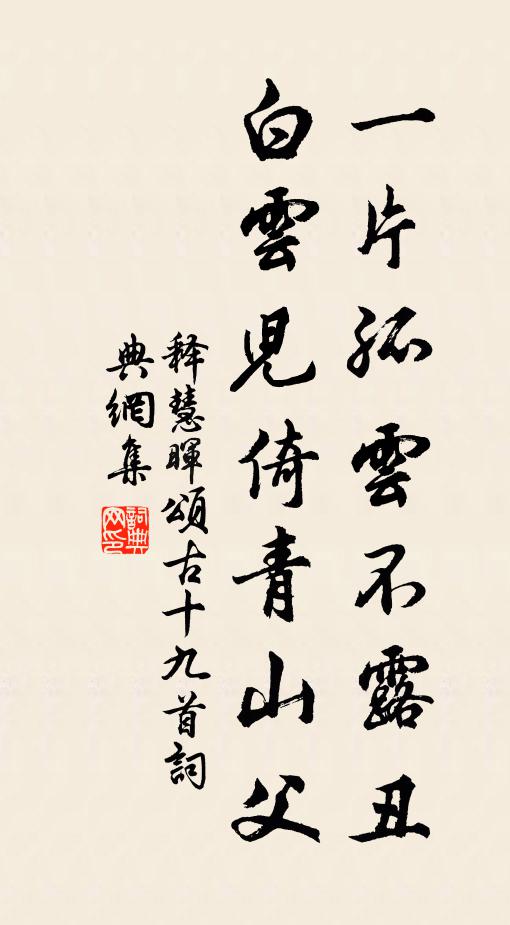 一片孤雲不露丑
白雲児倚青山父
释慧暉頌古十九首詞
典網集
詞典
网印